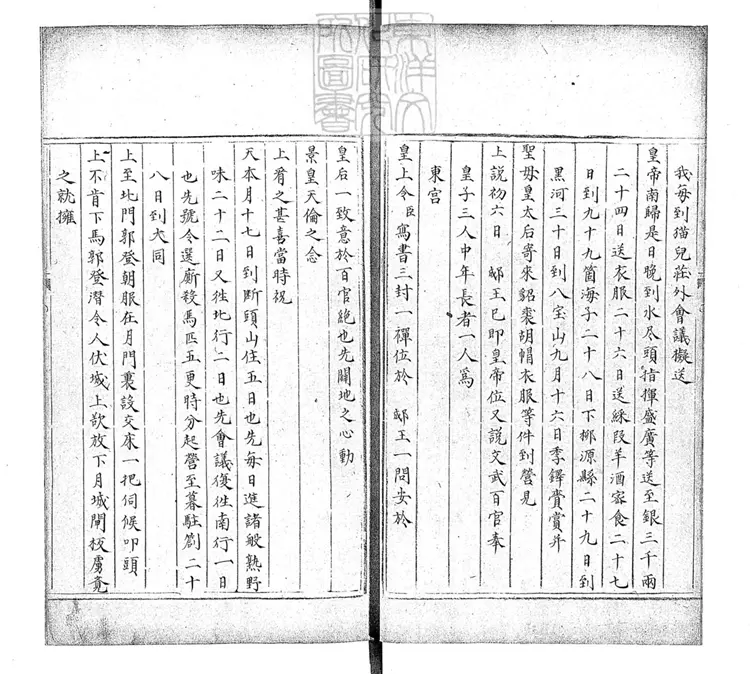 我每到猫兒莊外會議擬送
皇帝南歸是日晚到水尽頭指揮盛廣等送至銀三千兩
二十四日送衣服二十六日送綵段羊酒宻食二十七
日到九十九箇海子二十八日下梛源縣二十九日到
黒河三十日到八宝山九月十六日季鐸賫賞并
聖母皇太后寄來貂裘胡帽衣服等件到營見
上説初六日 郕王已即皇帝位又説文武百官奉
皇子三人中年長者一人爲
東宫
皇上令臣寫書三封一禪位於 郕王一問安於
皇后一致意於百官絶也先闢地之心動
景皇天倫之念
上肴之甚喜當時祝
天本月十七日到断頭山住五日也先每日進諸般熟野
味二十二日又徃北行二日也先會議復徃南行一日
也先號令選廝殺馬匹五更時分起營至暮駐劄二十
八日到大同
上至北門郭登朝服在月門裏設交床一把伺候叩頭
上不肯下馬郭登潜令人伏城上欲放下月城閘板虜竟
之就擁
東洋文化研究所圖書